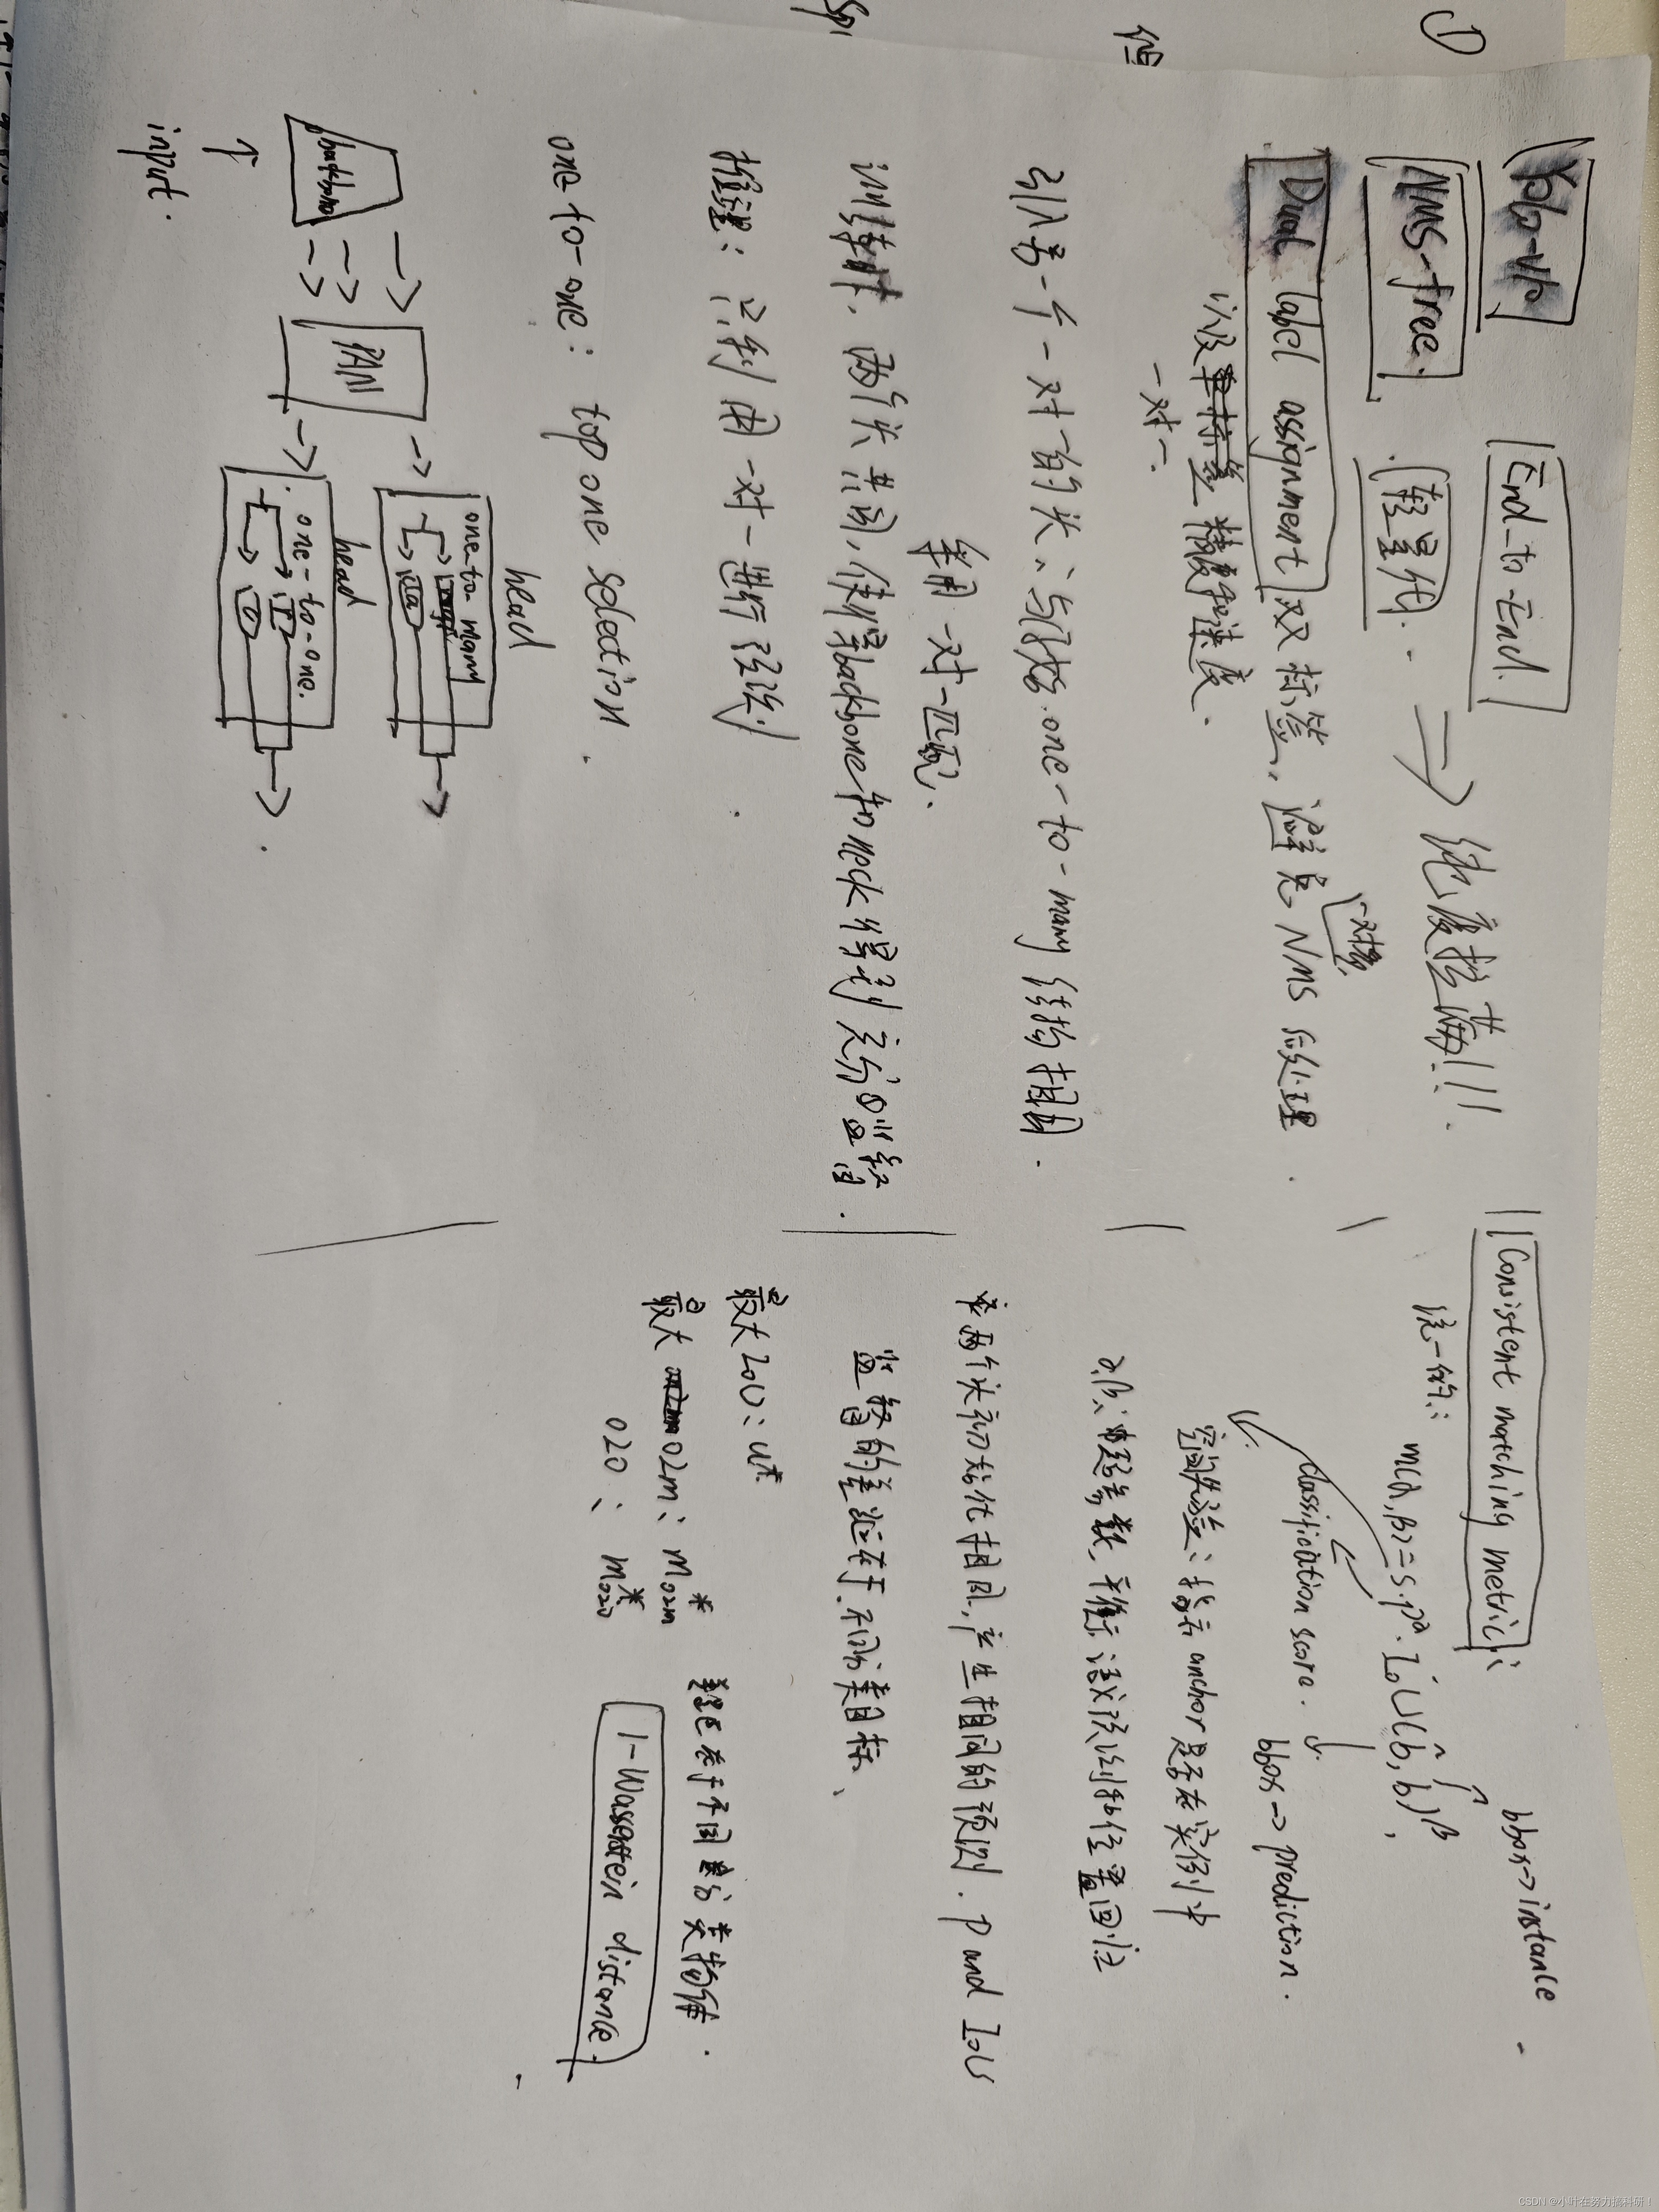 ①
Yolo-v10
End-to-End.
NMS-free.
轻量化.
绝度拉满!!!.
一对多
Dual label assignment 双标签, 避免 NMS 后处理.
以及单标签 精度和速度.
一对一.
引入另一个一对一的头,与原始 one-to-many 结构相同.
采用一对一匹配.
训练时, 两个头共同, 使得backbone和neck得到充分的监督.
推理: 只利用一对一进行
one-to-one: top one selection.
head
one-to-many
head
one-to-one.
PAN
backbone
input.
Consistent matching metric:
bbox→instance
统一的: m(α,β)=s·p^α·IoU(b̂,b)^β,
classification score.
bbox→prediction.
空间先验: 指示 anchor 是否在实例中
α,β: 超参数, 平衡 语义预测和位置回归
两个头初始化相同, 产生相同的预测. p and IoU
监督的差距在于不同分类目标、
最大IoU: u*
最大 o2m: m*o2m
o2o: m*o2o
差距在于不同分类
1-Wasserstein distance.
CSDN @小叶在努力搞科研!